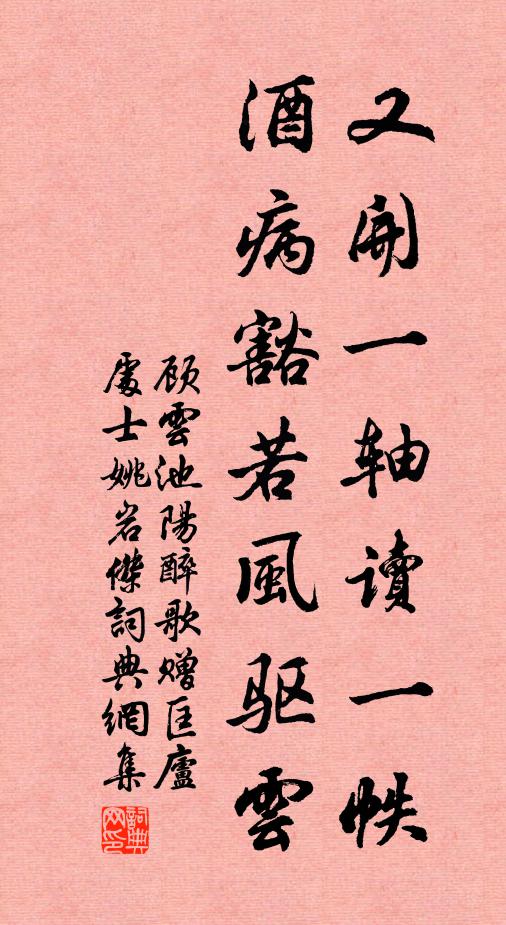 又開一轴讀一帙
酒病豁若風驱雲
顾雲池陽醉歌赠匡廬
處士姚岩傑詞典網集
詞典网印